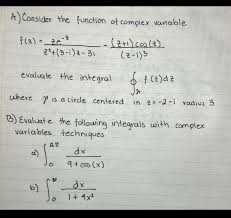 A) Consider the function of complex variable
f(z) = ze^-z / z²+(3-i)z-3i - (z+1)cos(z) / (z-1)³
evaluate the integral ∮γ f(z)dz
where γ is a circle centered in z=-2-i radius 3
B) Evaluate the following integrals with complex
variables techniques
a) ∫₀^2π dx / 9+cos(x)
b) ∫₀^∞ dx / 1+4x²